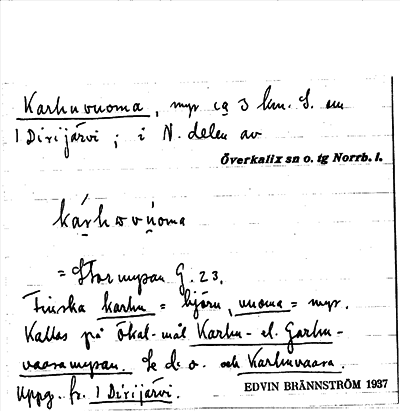 Karhuvuoma, myr ca 3 km. S. om
1 Dirijärvi ; i N. delen av
Överkalix sn o. tg Norrb. l.
kárhωvúoma
= Stormyran G. 23.
Finska karhu = björn, vuoma = myr.
Kallas på Ökal-mål Karhu- el. Garhu-
vaaramyran. Se d. o. och Karhuvaara.
Uppg. fr. 1 Dirijärvi.
EDVIN BRÄNNSTRÖM 1937